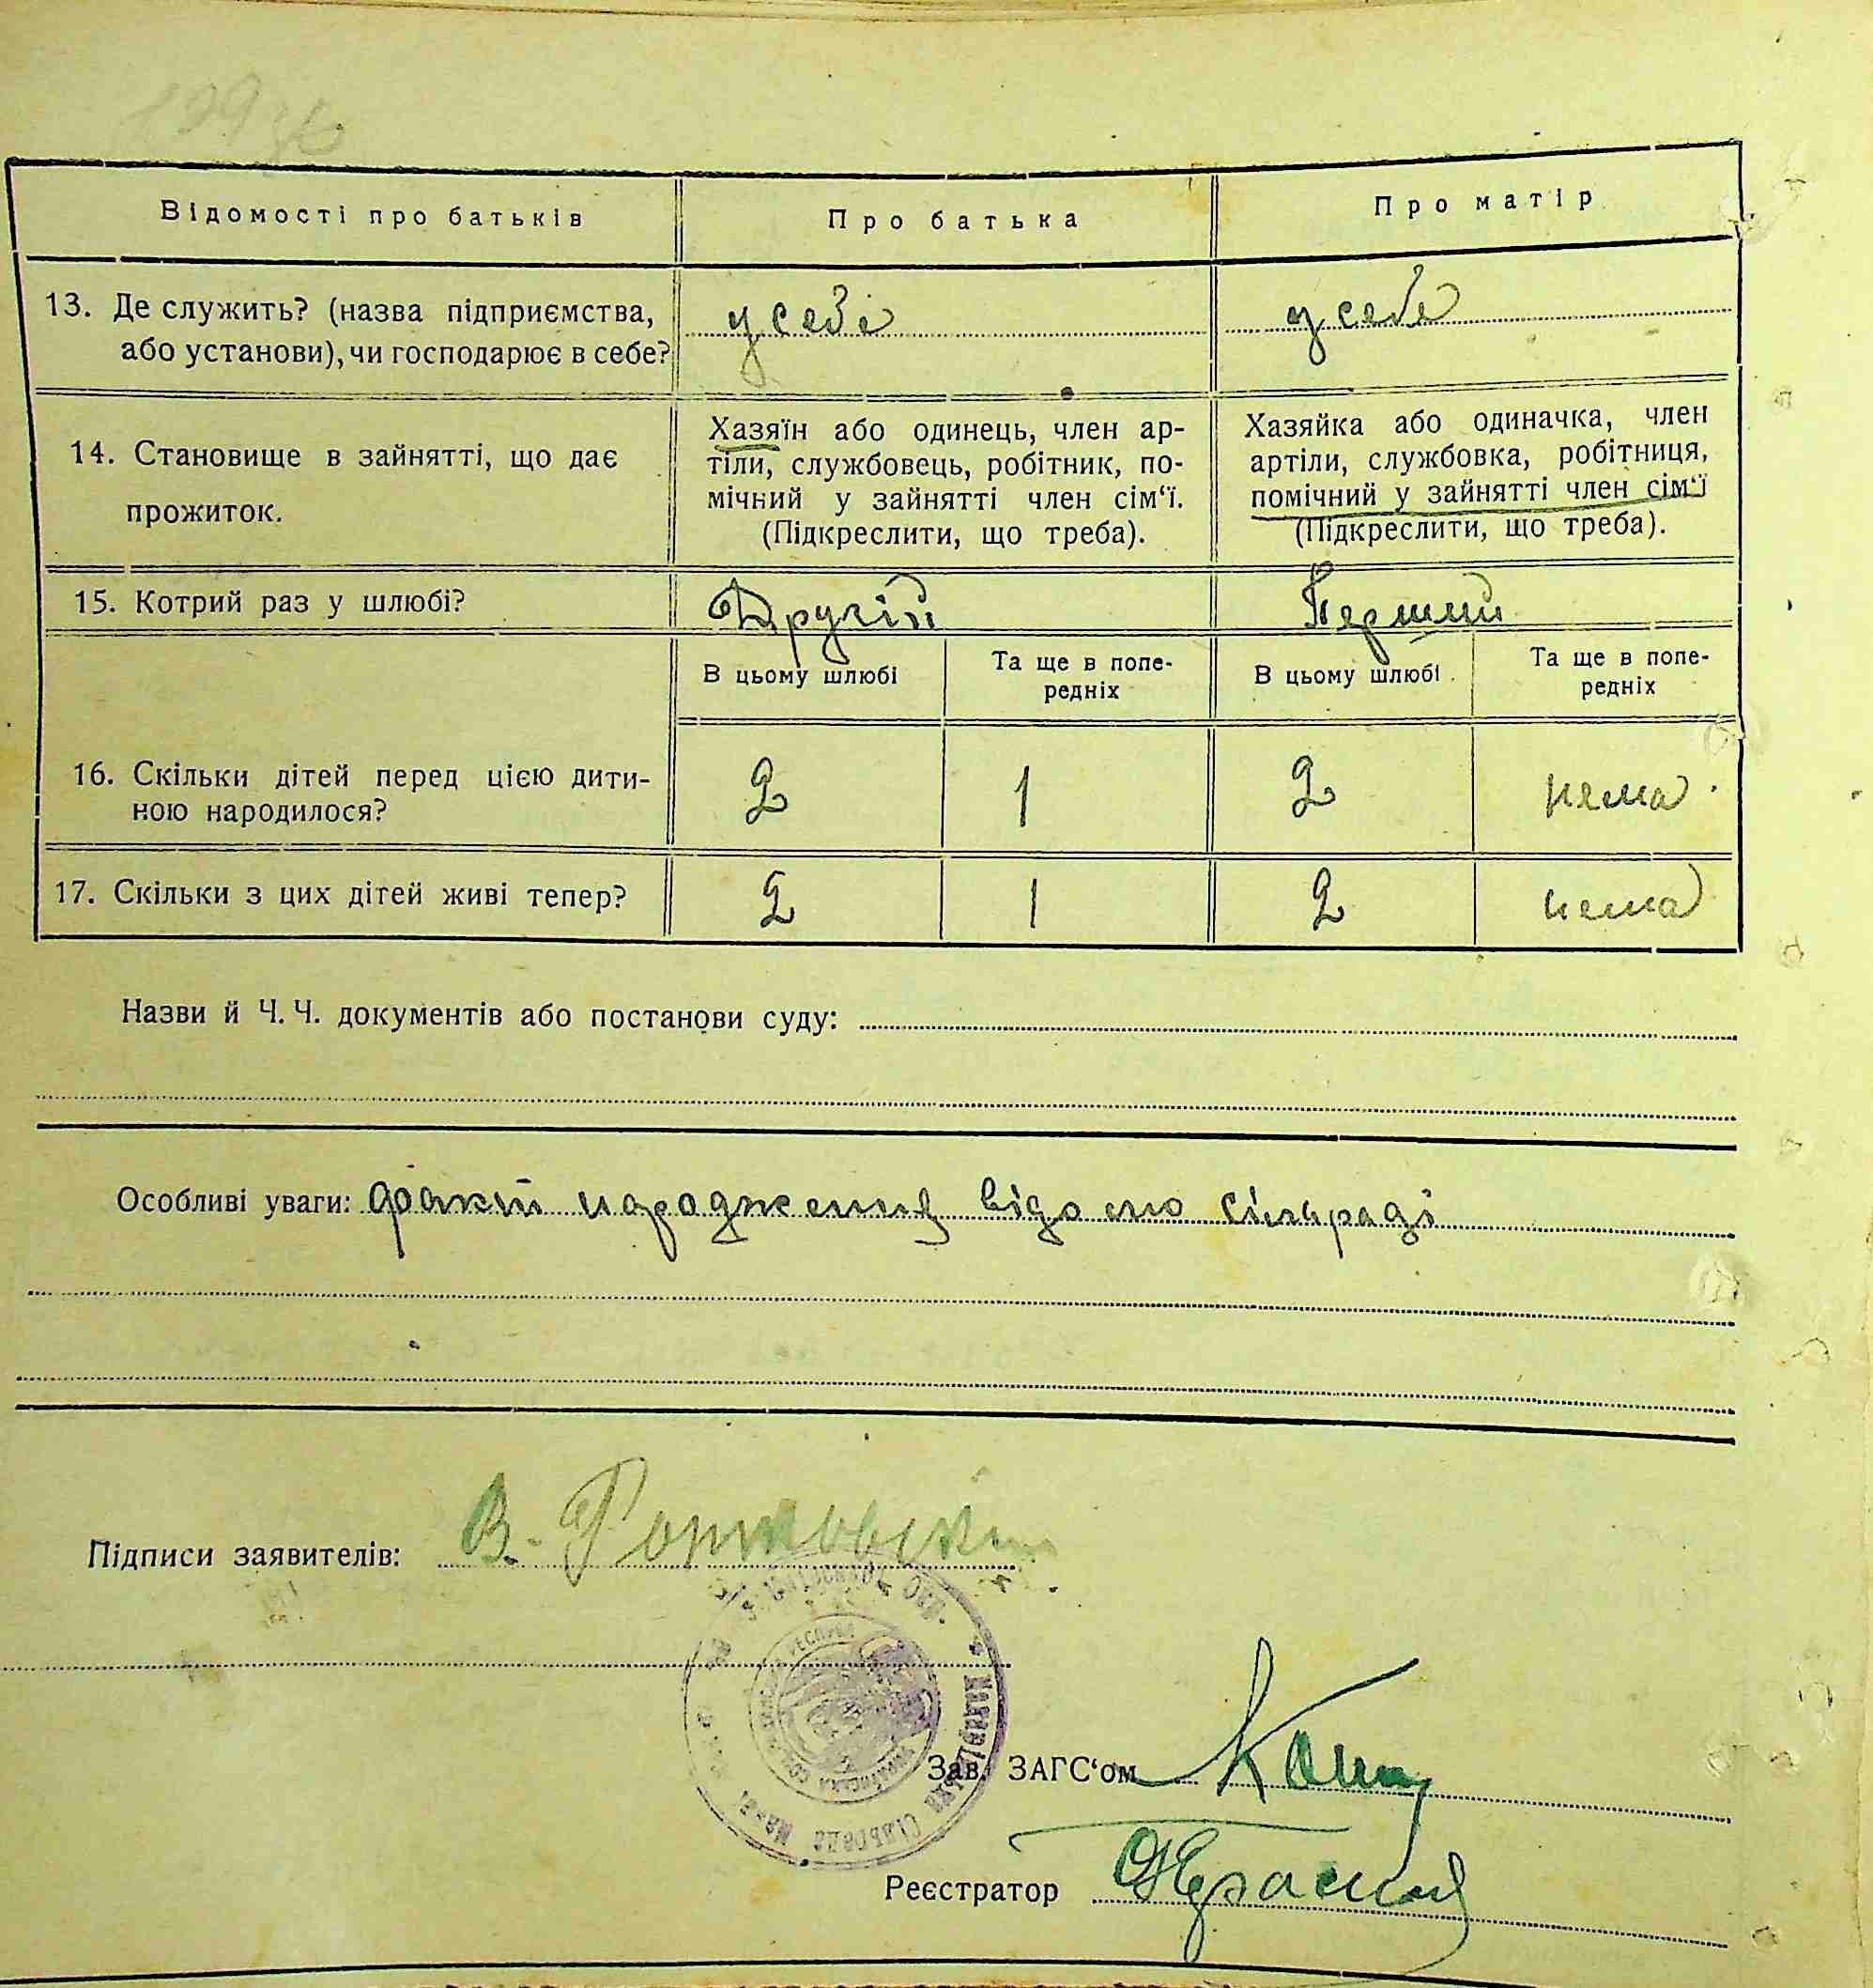 Відомості про батьків
Про батька
Про матір
13. Де служить? (назва підприємства,
або установи), чи господарює в себе?
у себе
у себе
14. Становище в зайнятті, що дає
прожиток.
Хазяїн або одинець, член ар-
тіли, службовець, робітник, по-
мічний у зайнятті член сім‘ї.
(Підкреслити, що треба).
Хазяйка або одиначка, член
артіли, службовка, робітниця,
помічний у зайнятті член сім‘ї
(Підкреслити, що треба).
15. Котрий раз у шлюбі?
Другій
Перший
В цьому шлюбі
Та ще в попе-
редніх
В цьому шлюбі
Та ще в попе-
редніх
16. Скільки дітей перед цією дити-
ною народилося?
2
1
2
нема
17. Скільки з цих дітей живі тепер?
2
1
2
нема
Назви й Ч. Ч. документів або постанови суду:
Особливі уваги: факт народження відомо сільраді
Підписи заявителів: В.
Зав. ЗАГС‘ом
Реєстратор